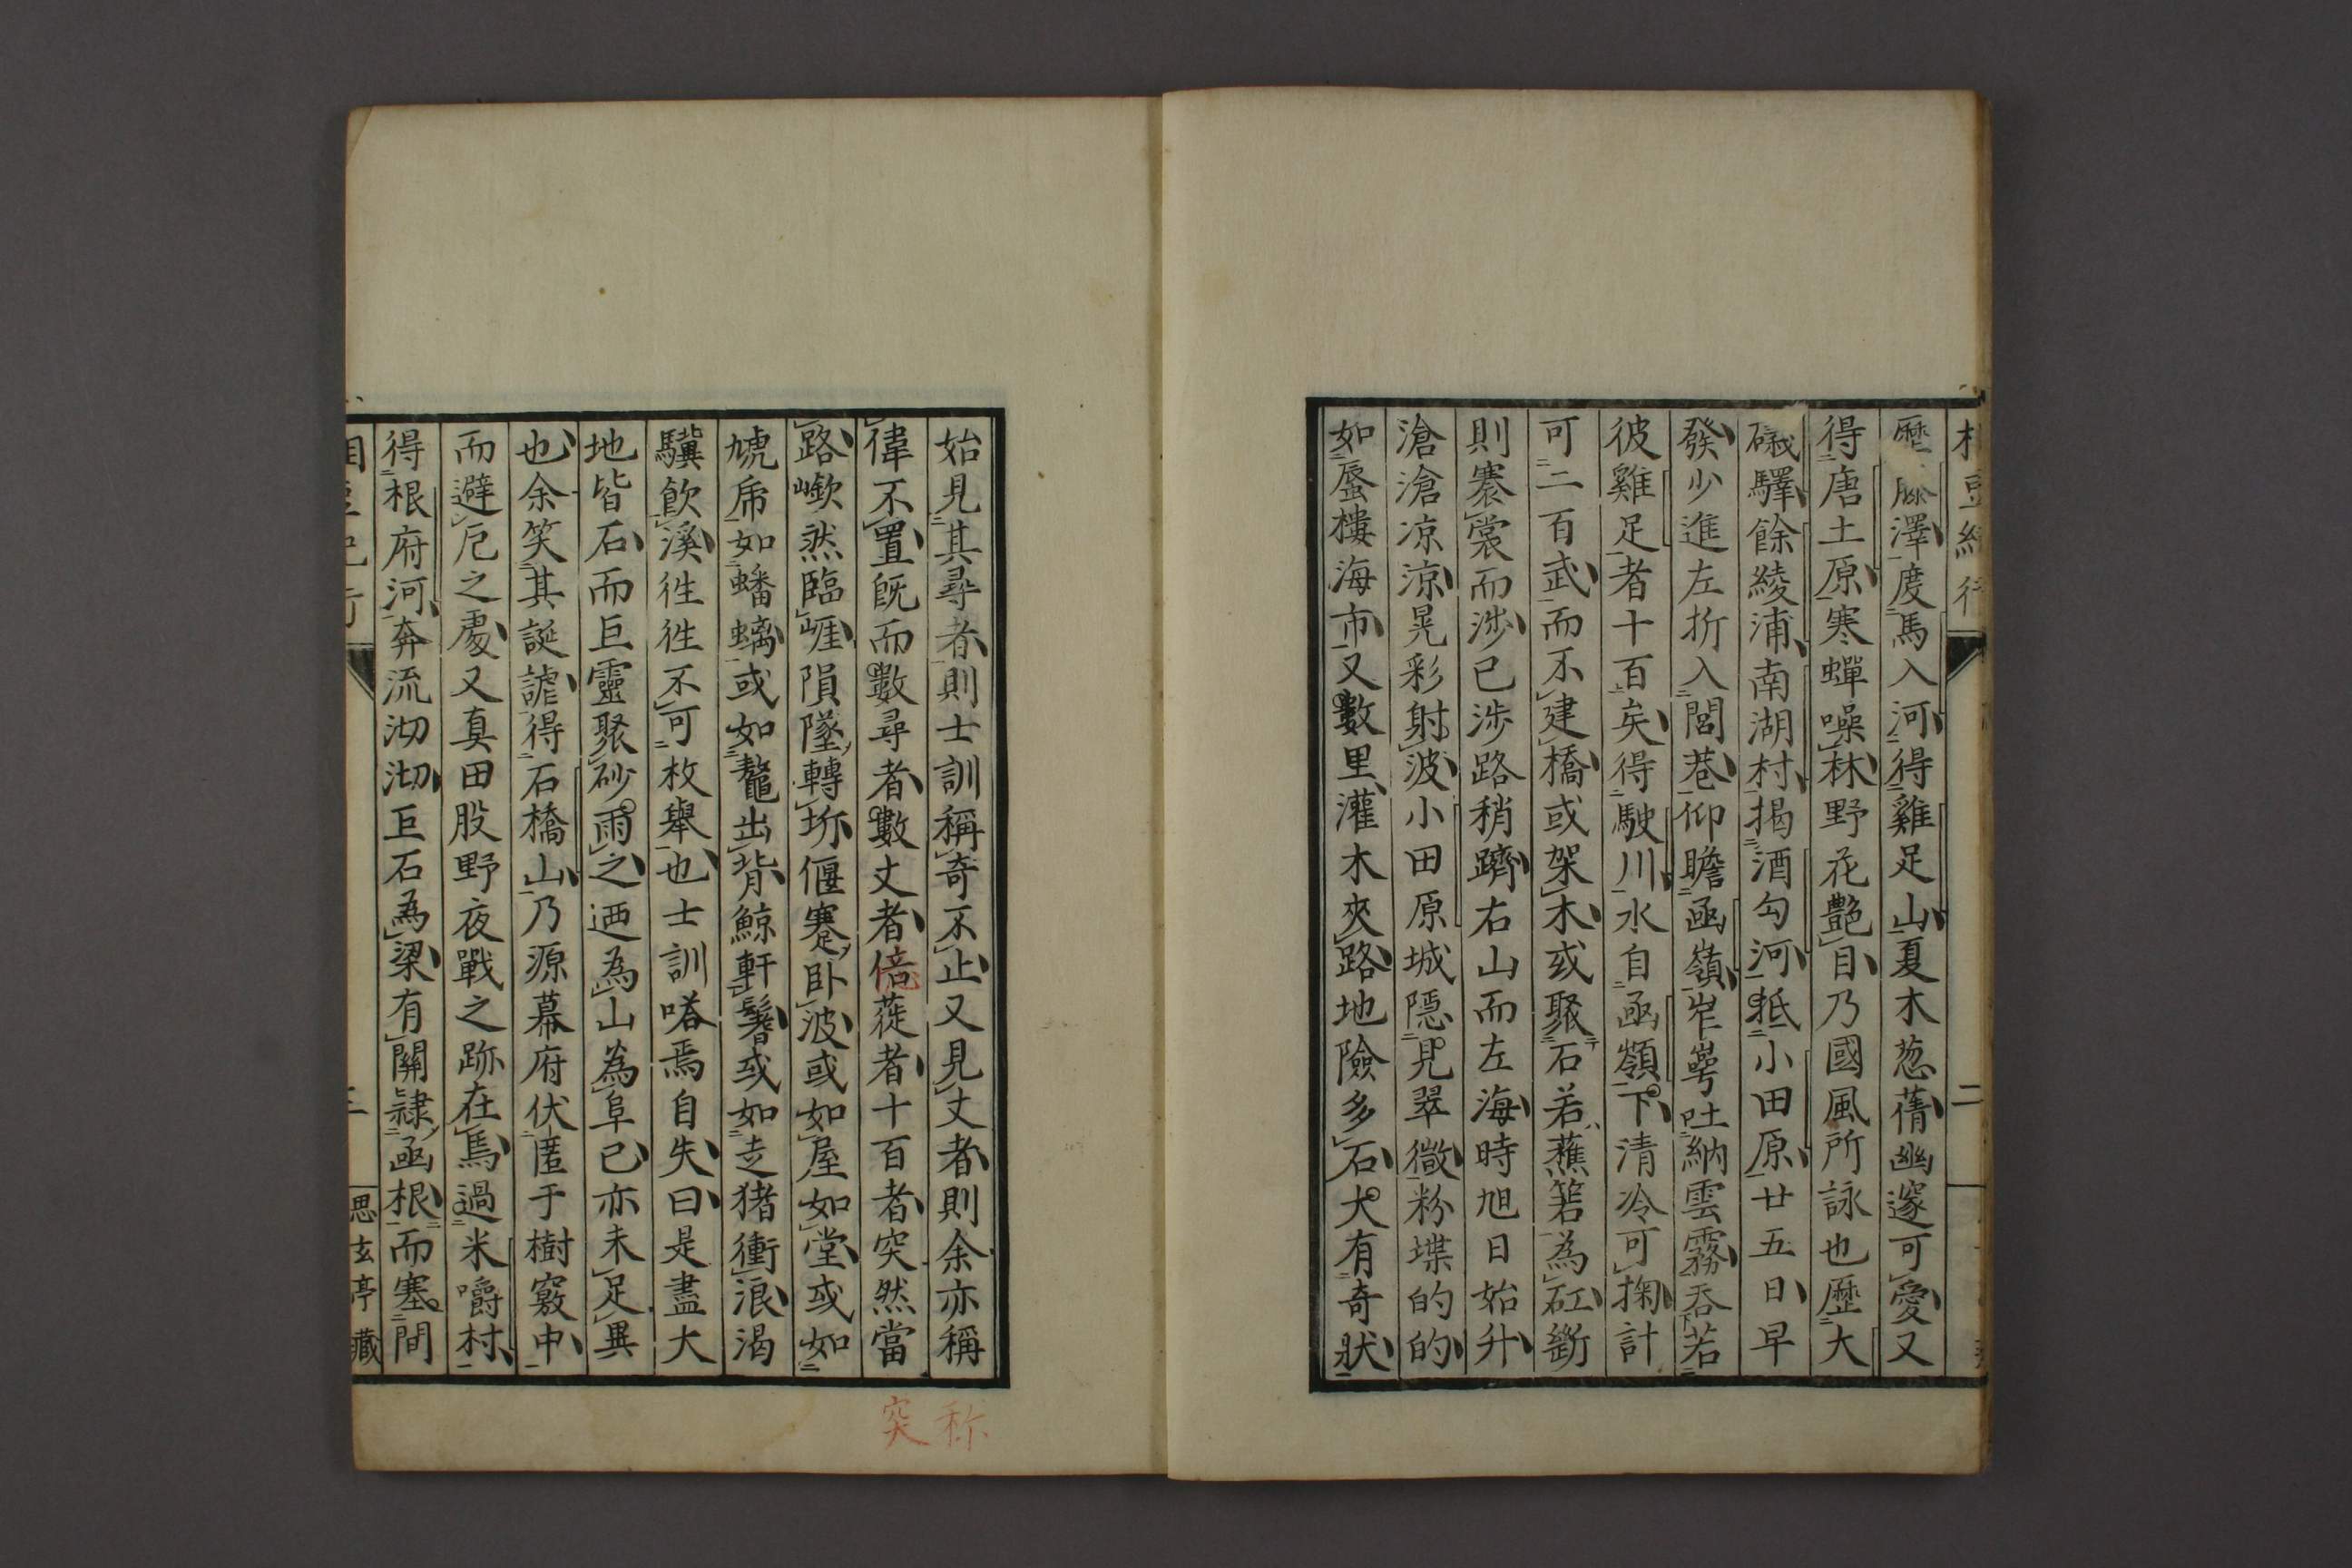 歷 藤澤度馬入河得雞足山夏木葱蒨幽邃可愛又
得唐土原寒蟬噪林野花艷目乃國風所詠也歷大
磯驛餘綾浦南湖村揭酒勾河抵小田原廿五日早
發少進左折入閭巷仰瞻函嶺岝崿吐納雲霧吞若
彼雞足者十百矣得駛川水自函嶺下清冷可掬計
可二百武而不建橋或架木或聚石若蕉箬為矼斷
則褰裳而涉已涉路稍躋右山而左海時旭日始升
滄滄凉凉晃彩射波小田原城隱見翠微粉堞的的
如蜃樓海市又數里灌木夾路地險多石大有奇狀
始見其尋者則士訓稱奇不止又見丈者則余亦稱
偉不置旣而數尋者數丈者倍蓰者十百者突然當
路嶔然臨崖隕墜轉圻偃蹇臥波或如屋如堂或如
虓虎如蟠螭或如鼇出背鯨軒鬐或如走猪衝浪渴
驥飲溪往往不可枚舉也士訓嗒焉自失曰是盡大
地皆石而巨靈聚砂雨之迺為山為阜已亦未足異
也余笑其誕謔得石橋山乃源幕府伏匿于樹竅中
而避厄之處又真田股野夜戰之跡在焉過米嚼村
得根府河奔流沏沏巨石為梁有關隷函根而塞間
二
思玄亭藏
称
突